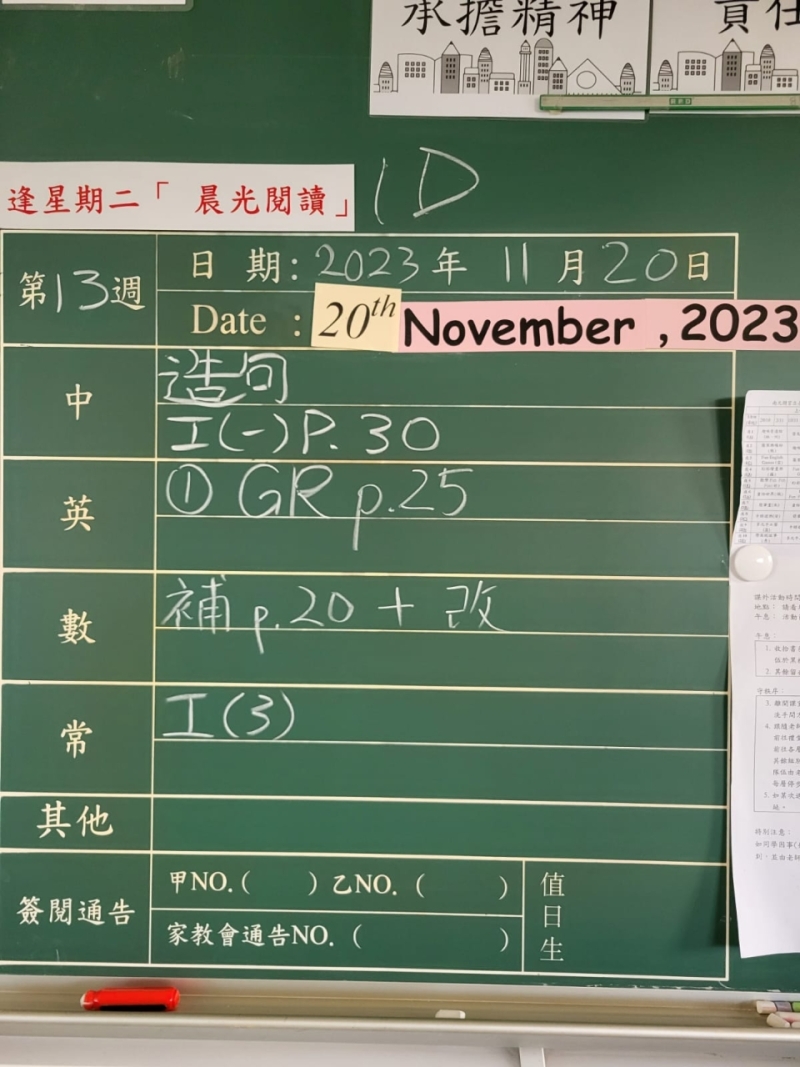 承擔精神
責任
逢星期二「 晨光閱讀」
1D
第13週
日 期：2023年 11月20日
Date : 20th November , 2023
中
造句
工(一)P.30
英
① GR p.25
數
補 p.20 + 改
常
工(3)
其他
簽閱通告
甲NO.( ) 乙NO. ( )
家教會通告NO. ( )
值日生
課外活動時間
午息：
1.
2.
守秩序：
3.
4.
5.
特別注意：